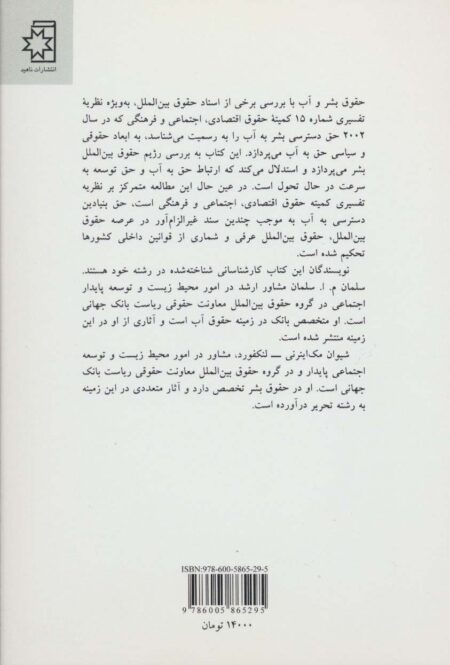 انتشارات ناهید
حقوق بشر و آب با بررسی برخی از اسناد حقوق بین‌الملل، به‌ویژه نظریهٔ
تفسیری شماره ۱۵ کمیتهٔ حقوق اقتصادی، اجتماعی و فرهنگی که در سال
۲۰۰۲ حق دسترسی بشر به آب را به رسمیت می‌شناسد، به ابعاد حقوقی
و سیاسی حق به آب می‌پردازد. این کتاب به بررسی رژیم حقوق بین‌الملل
بشر می‌پردازد و استدلال می‌کند که ارتباط حق به آب و حق توسعه به
سرعت در حال تحول است. در عین حال این مطالعه متمرکز بر نظریه
تفسیری کمیته حقوق اقتصادی، اجتماعی و فرهنگی است، حق بنیادین
دسترسی به آب به موجب چندین سند غیرالزام‌آور در عرصه حقوق
بین‌الملل، حقوق بین‌الملل عرفی و شماری از قوانین داخلی کشورها
تحکیم شده است.
نویسندگان این کتاب کارشناسانی شناخته‌شده در رشته خود هستند.
سلمان م. ا. سلمان مشاور ارشد در امور محیط زیست و توسعه پایدار
اجتماعی در گروه حقوق بین‌الملل معاونت حقوقی ریاست بانک جهانی
است. او متخصص بانک در زمینه حقوق آب است و آثاری از او در این
زمینه منتشر شده است.
شیوان مک‌اینرنی ــ لنکفورد، مشاور در امور محیط زیست و توسعه
اجتماعی پایدار و در گروه حقوق بین‌الملل معاونت حقوقی ریاست بانک
جهانی است. او در حقوق بشر تخصص دارد و آثار متعددی در این زمینه
به رشته تحریر درآورده است.
ISBN:978-600-5865-29-5
9 786005 865295
۱۴۰۰۰ تومان